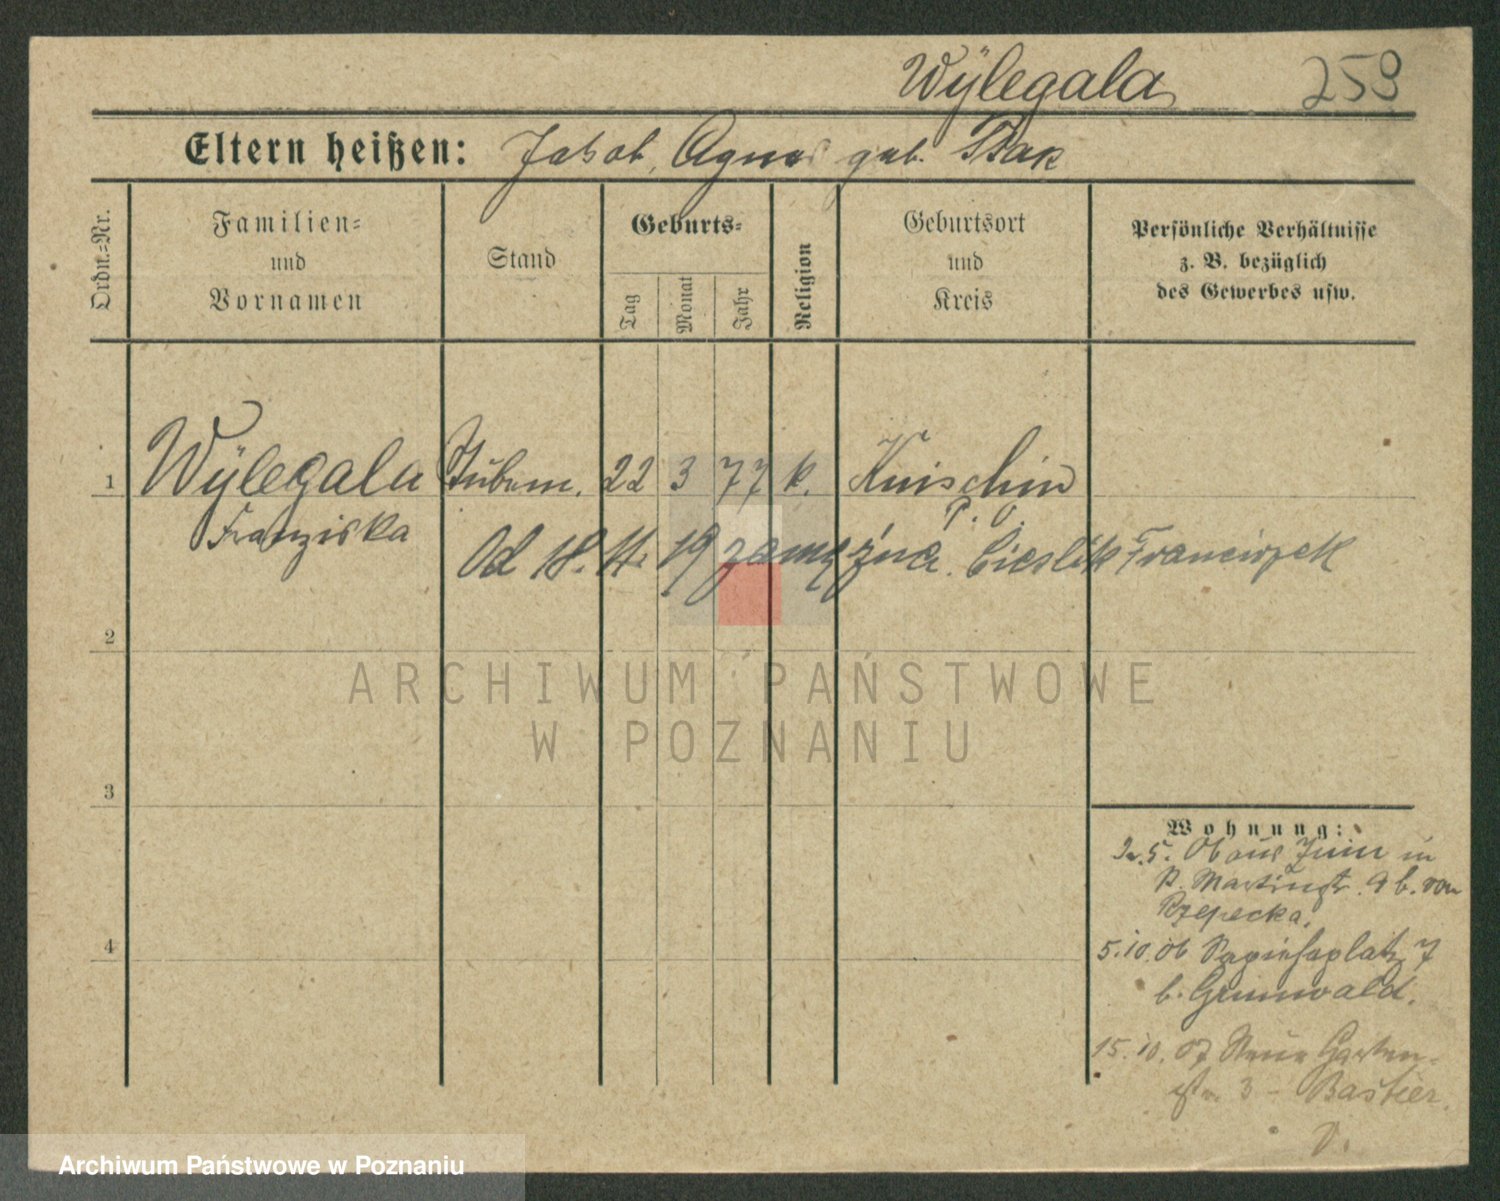 Wÿlegala 259
Eltern heißen: Jakob, Agnes geb. Ptak
Ordn.-Nr.
Familien-
und
Vornamen
Stand
Geburts-
Tag
Monat
Jahr
Religion
Geburtsort
und
Kreis
Persönliche Verhältnisse
z. B. bezüglich
des Gewerbes usw.
1 Wÿlegala Stubem. 22 3 77 k.
Franziska P. O.
Od 18. 11. 19 zamężna. Cieslik Franciszek
2
3
4
ARCHIWUM PAŃSTWOWE
W POZNANIU
Wohnung:
5. 06 aus in
St. Martinstr. 9 b. von
Rzepecka.
5.10.06 Sapiehaplatz 7
b. Grunwald.
15.10.07 Neue Garten-
str. 3 - Bastier.
V.
Archiwum Państwowe w Poznaniu